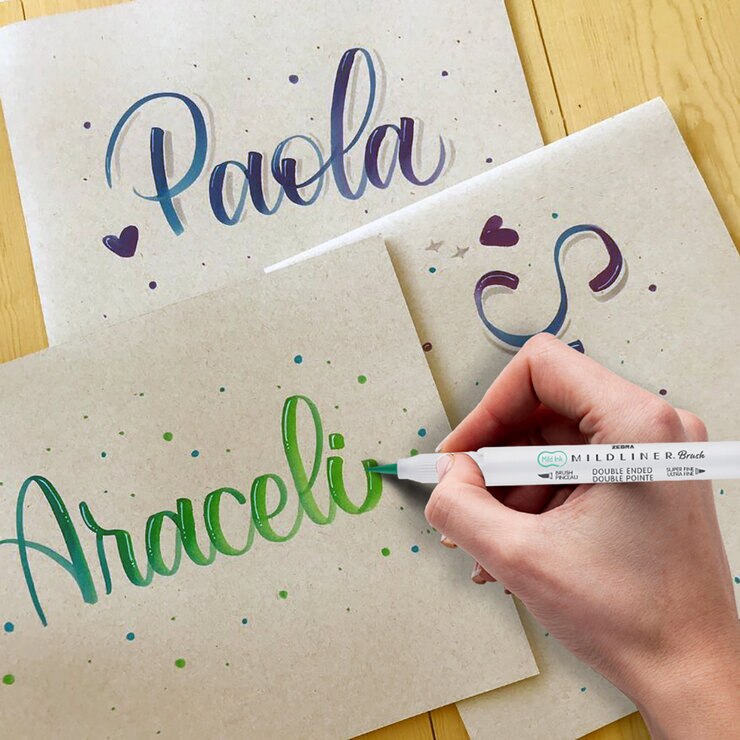 Paola
S
Araceli
ZEBRA
Mild Ink MILDLINER. Brush
BRUSH
PINCEAU
DOUBLE ENDED
DOUBLE POINTE
SUPER FINE
ULTRA FINE